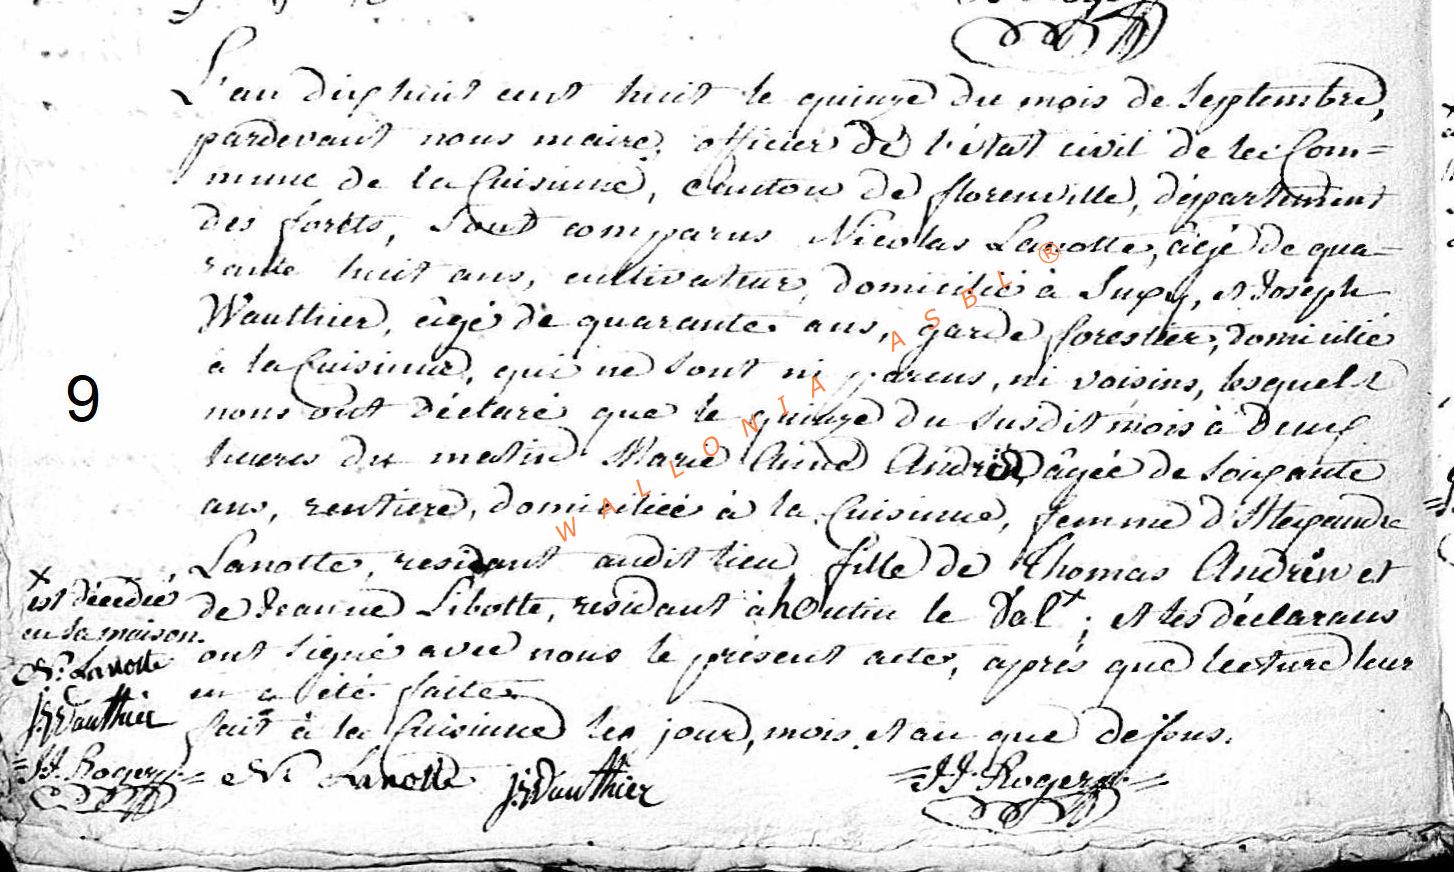 L'an dix huit cent huit le quinze du mois de Septembre,
pardevant nous maire, officier de l'état civil de la Com=
mune de la Cuisinne, canton de florenville, département
des forêts, sont comparus Nicolas Lanotte, âgé de qua-
rante huit ans, cultivateur, domicilié à Suxy, et Joseph
Wauthier, âgé de quarante ans, garde forestier, domicilié
à la Cuisinne, qui ne sont ni parens, ni voisins, lesquels
nous ont déclaré que le quinze du susdit mois à deux
heures du matin Marie Anne Andrin, âgée de soixante
ans, rentiere, domiciliée à la Cuisinne, femme d'Alexandre
Lanotte, residant audit lieu fille de Thomas Andrin et
de Jeanne Libotte, residant à houtin le Val x ; et les déclarans
ont signé avec nous le présent acte, après que lecture leur
en a été faite.
fait à la Cuisinne les jour, mois et an que dessus.
N: Lanotte J: Wauthier = JJ. Rogery =
x est décédée
en sa maison.
N: Lanotte
J: Wauthier
= JJ. Rogery =
9
WALLONIA ASBL ®